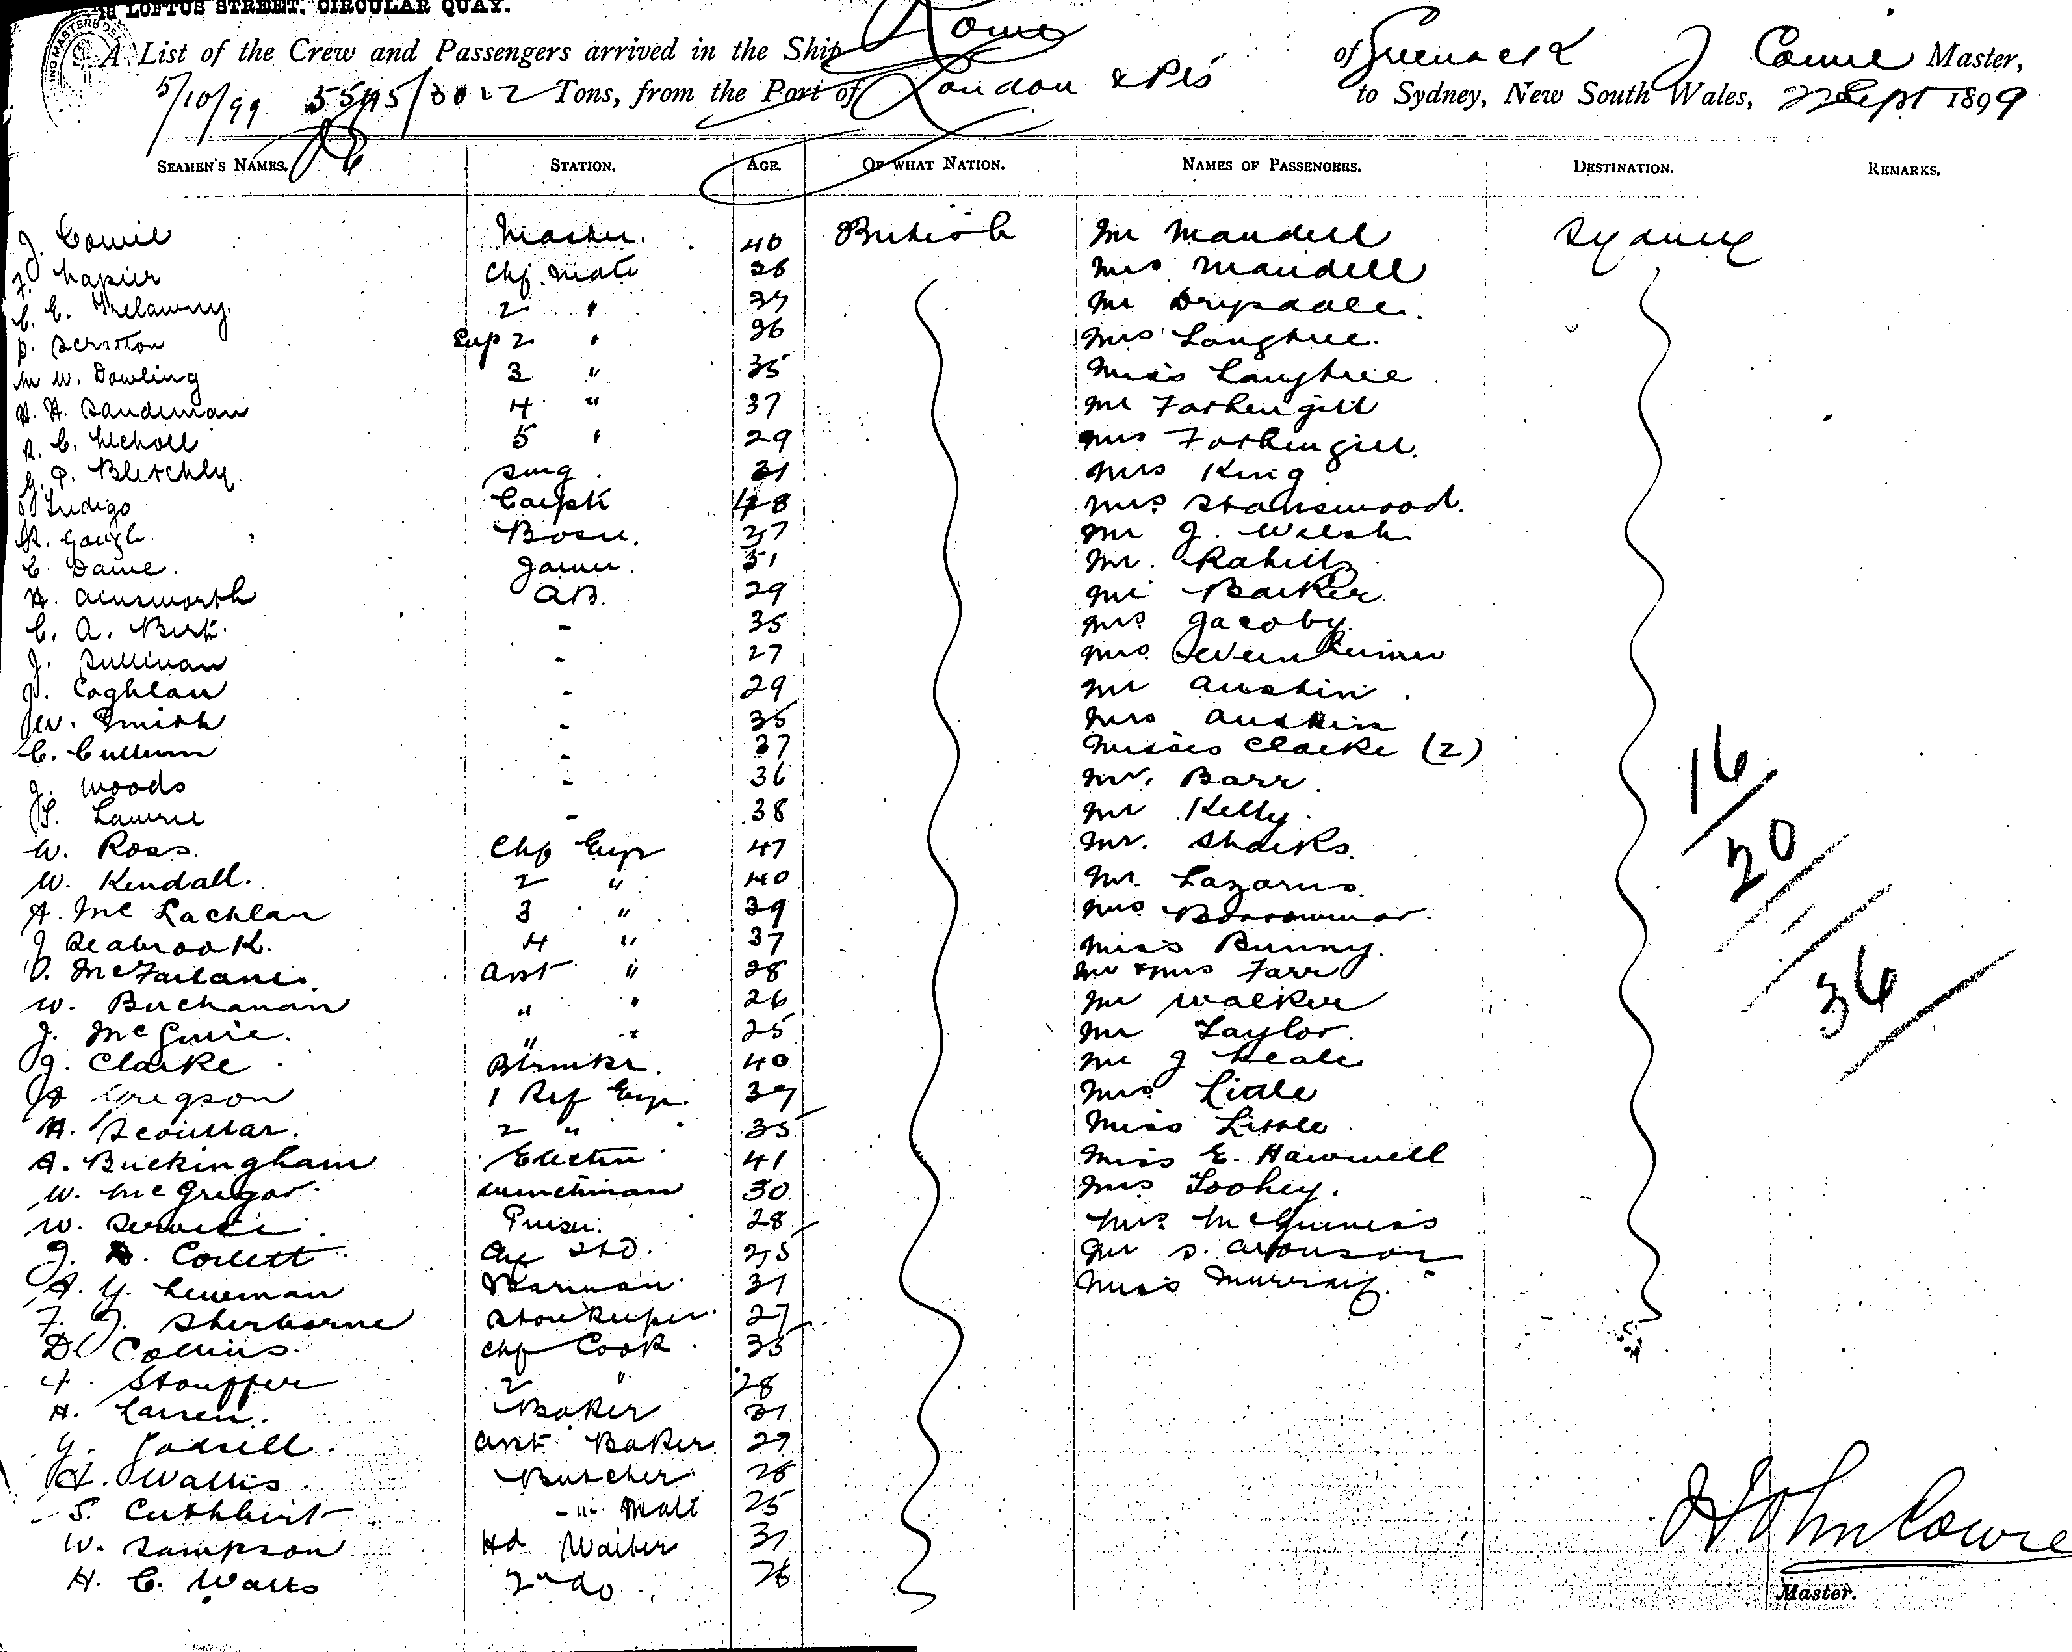 18 LOFTUS STREET, CIRCULAR QUAY.
A List of the Crew and Passengers arrived in the Ship Rome of Greenock J Cowie Master,
5/10/99 Tons, from the Port of London & Pts to Sydney, New South Wales, Sept 1899
SEAMEN'S NAMES. STATION. AGE. OF WHAT NATION. NAMES OF PASSENGERS. DESTINATION. REMARKS.
J. Cowie Master. 46 British Mr Mandell Sydney
F. Napier Chf. Mate 36 Mrs Mandell
C. E. Trelawny 2 " Mr Drysdale.
Sup 2 " 36 Mrs Langtree.
M W. Dowling 3 " 35 Miss Langtree
H. H. Sandeman 4 " 37 Mr Fothergill
R. C. Nicholl 5 " 29 Mrs Fothergill.
G. P. Bletchly Surg 31 Mrs King
Indigo Carptr 48 Mrs Stanswood.
R. Gough Bosn. 37 Mr J. Welsh
C. Daniel. Joiner. 51 Mr. Rahilly
H. Ainsworth AB. 29 Mr Barker
C. A. Birt. - 35 Mrs Jacoby
J. Sullivan - 27 Mrs
J. Coghlan - 29 Mr Austin.
W. Smith - 35 Mrs Austin
C. Cullum - 37 Misses Clarke (2)
J. Woods - 36 Mr. Barr.
Lawrie - 38 Mr Kelly.
W. Ross. Chf Engr 47 Mr. Sharks.
W. Kendall. 2 " 40 Mr. Lazarus.
A. McLachlan 3 " 39 Mrs
J Seabrook. 4 " 37 Miss Bunny.
D. McFarlane. Asst " 28 Mr & Mrs Farr
W. Buchanan " " 26 Mr Walker
J. McGuire. " " 25 Mr Taylor.
J. Clarke Blrmkr. 40 Mr J Neale
Gregson 1 Ref Engr. 39 Mrs Little
H. Scoullar. 2 " 35 Miss Little
A. Buckingham Electrn 41 Miss E. Hawwell
W. McGregor. Winchman 30 Mrs Toohey.
W. Service. Purser. 28 Mrs McGuiness
J. D. Corlett Std. 25 Mr S. Aronson
A. Y. Newman Barman 31 Miss Murray.
F. J. Sherborne Storekeeper 27
D Collins. Chf Cook 35
Stouffer 2 " 28
H. Larsen. Baker 31
G. Asst Baker 27
H. Wallis Butcher 28
S. Cuthbert " Mate 25
W. Sampson Hd Waiter 31
H. C. Watts 2nd do. 26
16
20
36
John Cowie
Master.